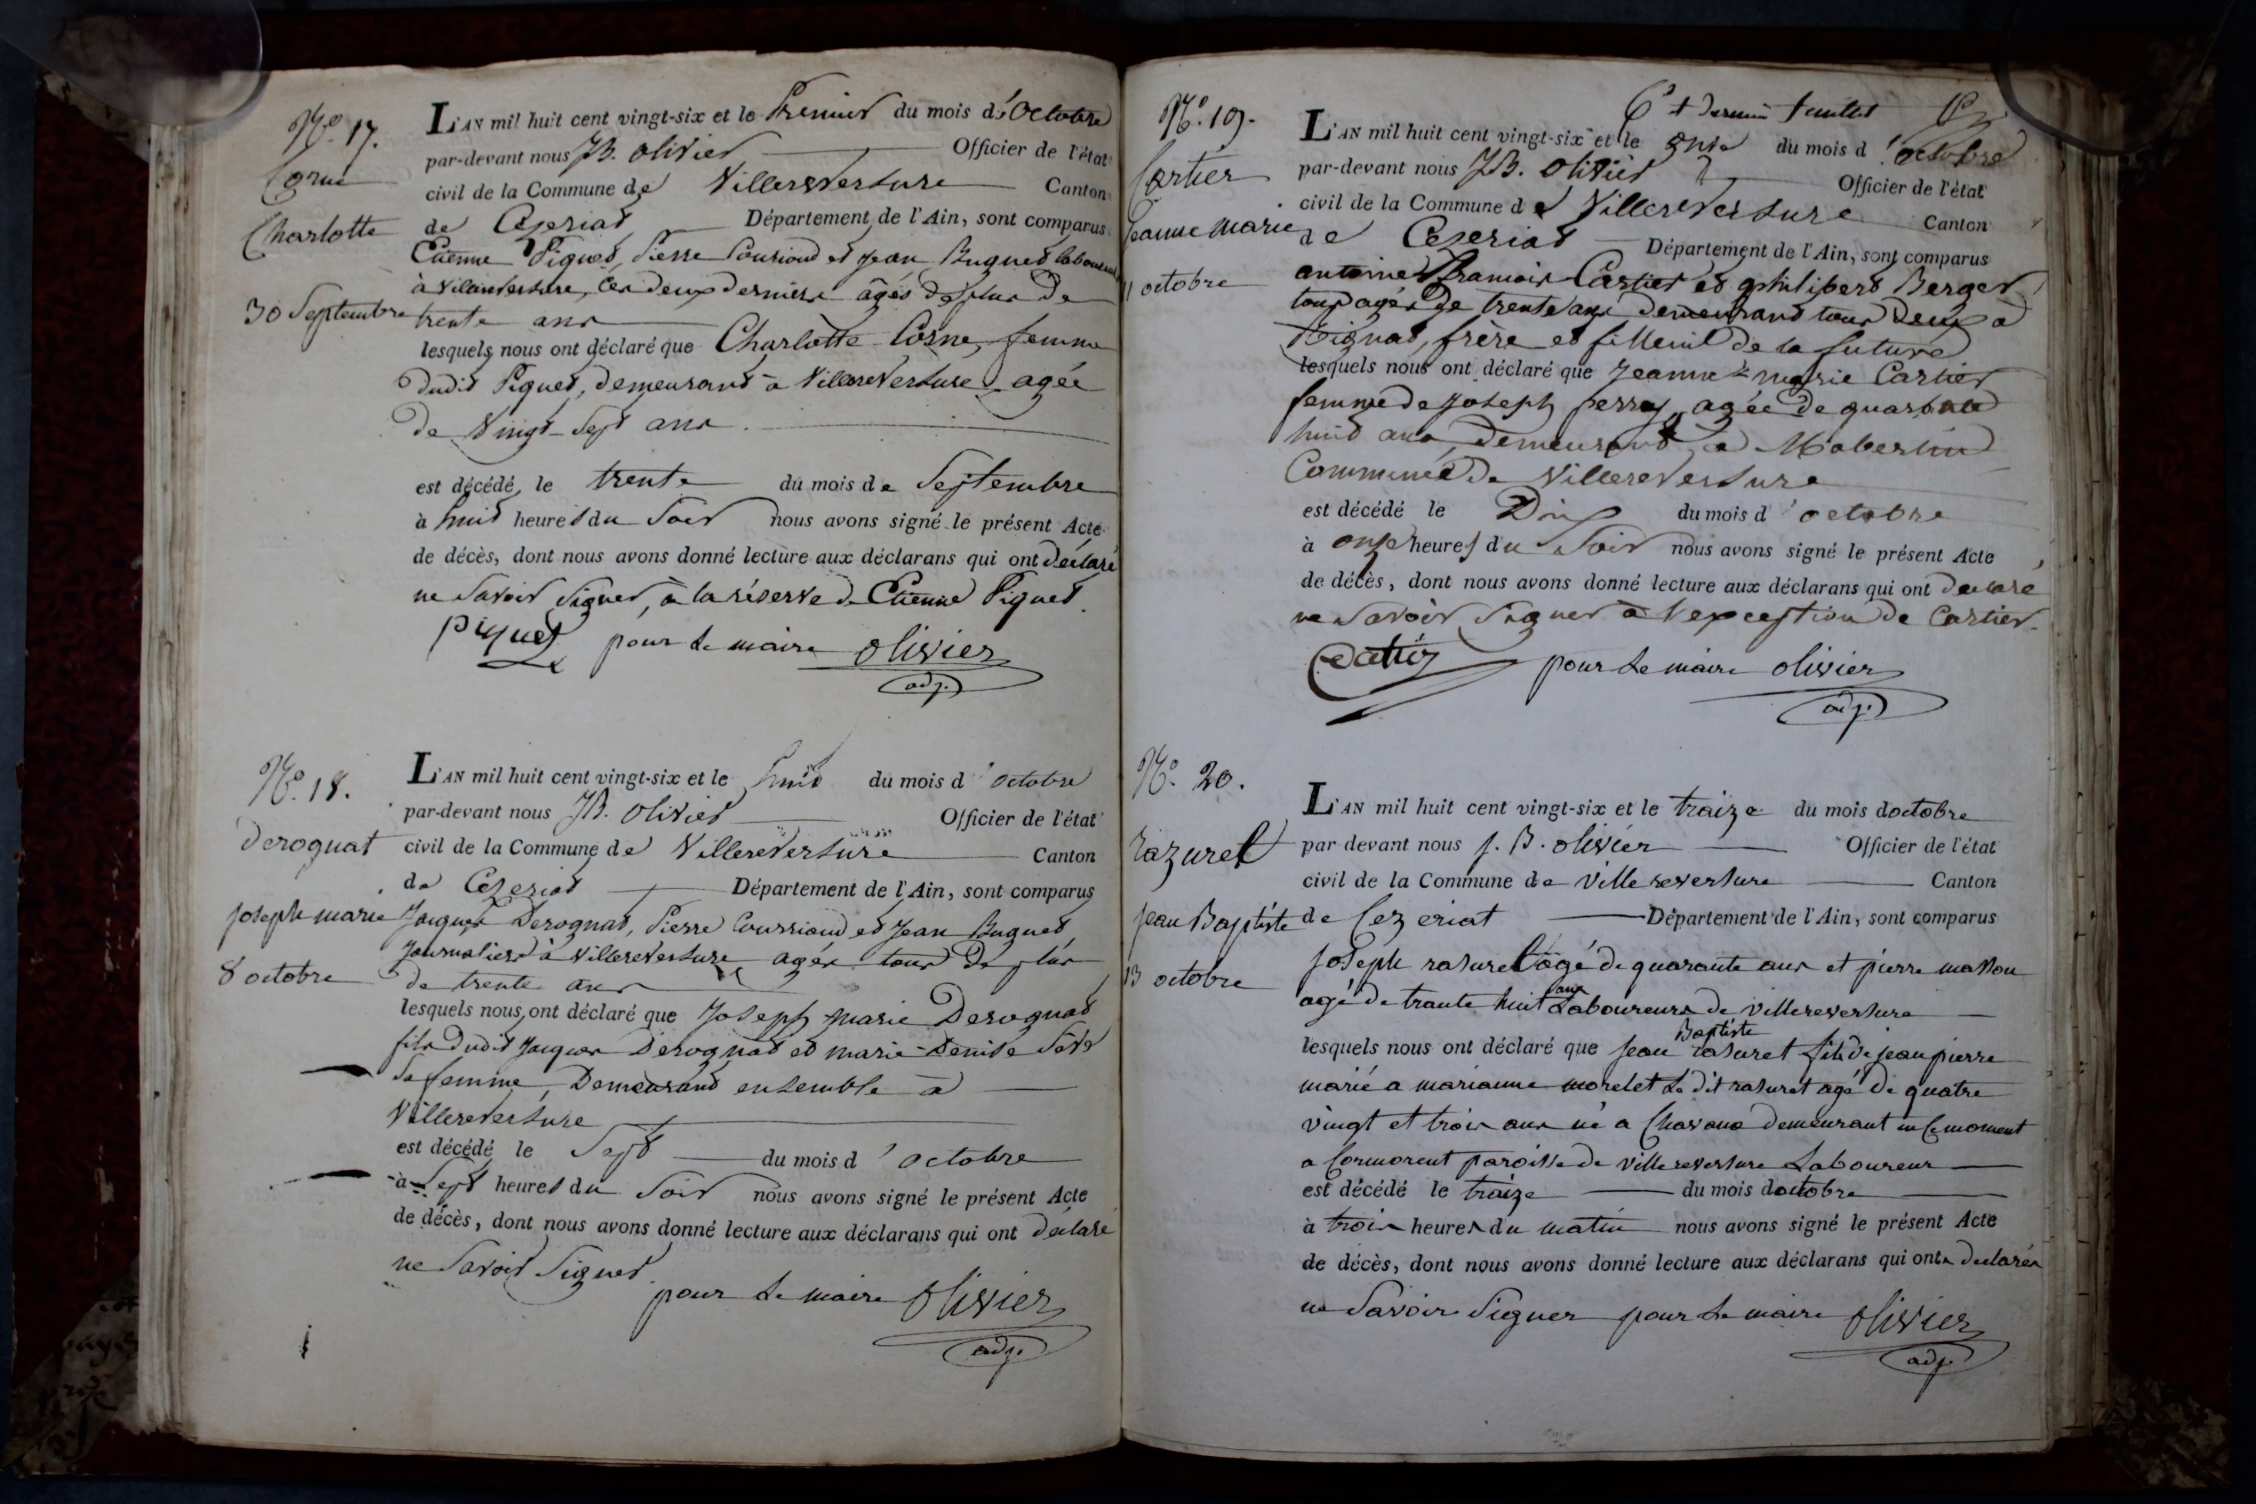 N.º 17.
Corne
Charlotte
30 Septembre
L'AN mil huit cent vingt-six et le Premier du mois d'Octobre
par-devant nous JB. Olivier Officier de l'état
civil de la Commune de Villereversure Canton
de Ceyseriat Département de l'Ain, sont comparus
Etienne Piquet, Pierre Coursioud et Jean Buguet laboureurs
à Villereversure, les deux derniers âgés de plus de
trente ans
lesquels nous ont déclaré que Charlotte Corne, femme
dudit Piquet, demeurant à Villereversure, agée
de vingt-sept ans.
est décédé, le trente du mois de Septembre
à huit heures du Soir nous avons signé le présent Acte
de décès, dont nous avons donné lecture aux déclarans qui ont déclaré
ne savoir signer, à la réserve de Etienne Piquet.
Piquet pour le maire Olivier
adj.
N.º 18.
Derognat
Joseph marie
8 octobre
L'AN mil huit cent vingt-six et le huit du mois d'octobre
par-devant nous JB. Olivier Officier de l'état
civil de la Commune de Villereversure Canton
de Ceseriat Département de l'Ain, sont comparus
Jacques Derognat, Pierre Coursioud et Jean Buguet
journaliers à Villereversure agés tous de plus
de trente ans
lesquels nous ont déclaré que Joseph marie Derognat
fils dudit Jacques Derognat et marie-Denise
sa femme, Demeurant ensemble à
Villereversure
est décédé le Sept du mois d'octobre
à Sept heures du Soir nous avons signé le présent Acte
de décès, dont nous avons donné lecture aux déclarans qui ont déclaré
ne savoir signer.
pour le maire Olivier
adj.
6.e et dernier feuillet
N.º 19.
Cartier
Jeanne Marie
11 octobre
L'AN mil huit cent vingt-six et le onze du mois d'octobre
par-devant nous JB. Olivier Officier de l'état
civil de la Commune de Villereversure Canton
de Ceseriat Département de l'Ain, sont comparus
antoine françois Cartier et philibert Berger
tous agés de trente ans demeurant tous deux à
Rignat, frère et filleul de la future
lesquels nous ont déclaré que Jeanne-marie Cartier
femme de Joseph perray, agée de quarante
huit ans, demeurant à
Commune de Villereversure
est décédé le Dix du mois d'octobre
à onze heures du Soir nous avons signé le présent Acte
de décès, dont nous avons donné lecture aux déclarans qui ont déclaré
ne savoir signer à l'exception de Cartier.
Cartier pour le maire olivier
adj.
N.º 20.
Razurel
Jean Baptiste
13 octobre
L'AN mil huit cent vingt-six et le traize du mois doctobre
par-devant nous j. B. olivier Officier de l'état
civil de la Commune de Villereversure Canton
de Cezeriat Département de l'Ain, sont comparus
Joseph rasurel âgé de quarante ans et pierre masson
agé de trante huit ans Laboureurs de villereversure
lesquels nous ont déclaré que Jean Baptiste rasuret fils de jean pierre
marié a marianne morelet Le dit rasuret agé de quatre
vingt et trois ans né a Chavana demeurant en ce moment
a Cormorent paroisse de villereversure Laboureur
est décédé le traize du mois doctobre
à trois heures du matin nous avons signé le présent Acte
de décès, dont nous avons donné lecture aux déclarans qui onts declarés
ne savoir signer pour le maire Olivier
adj.